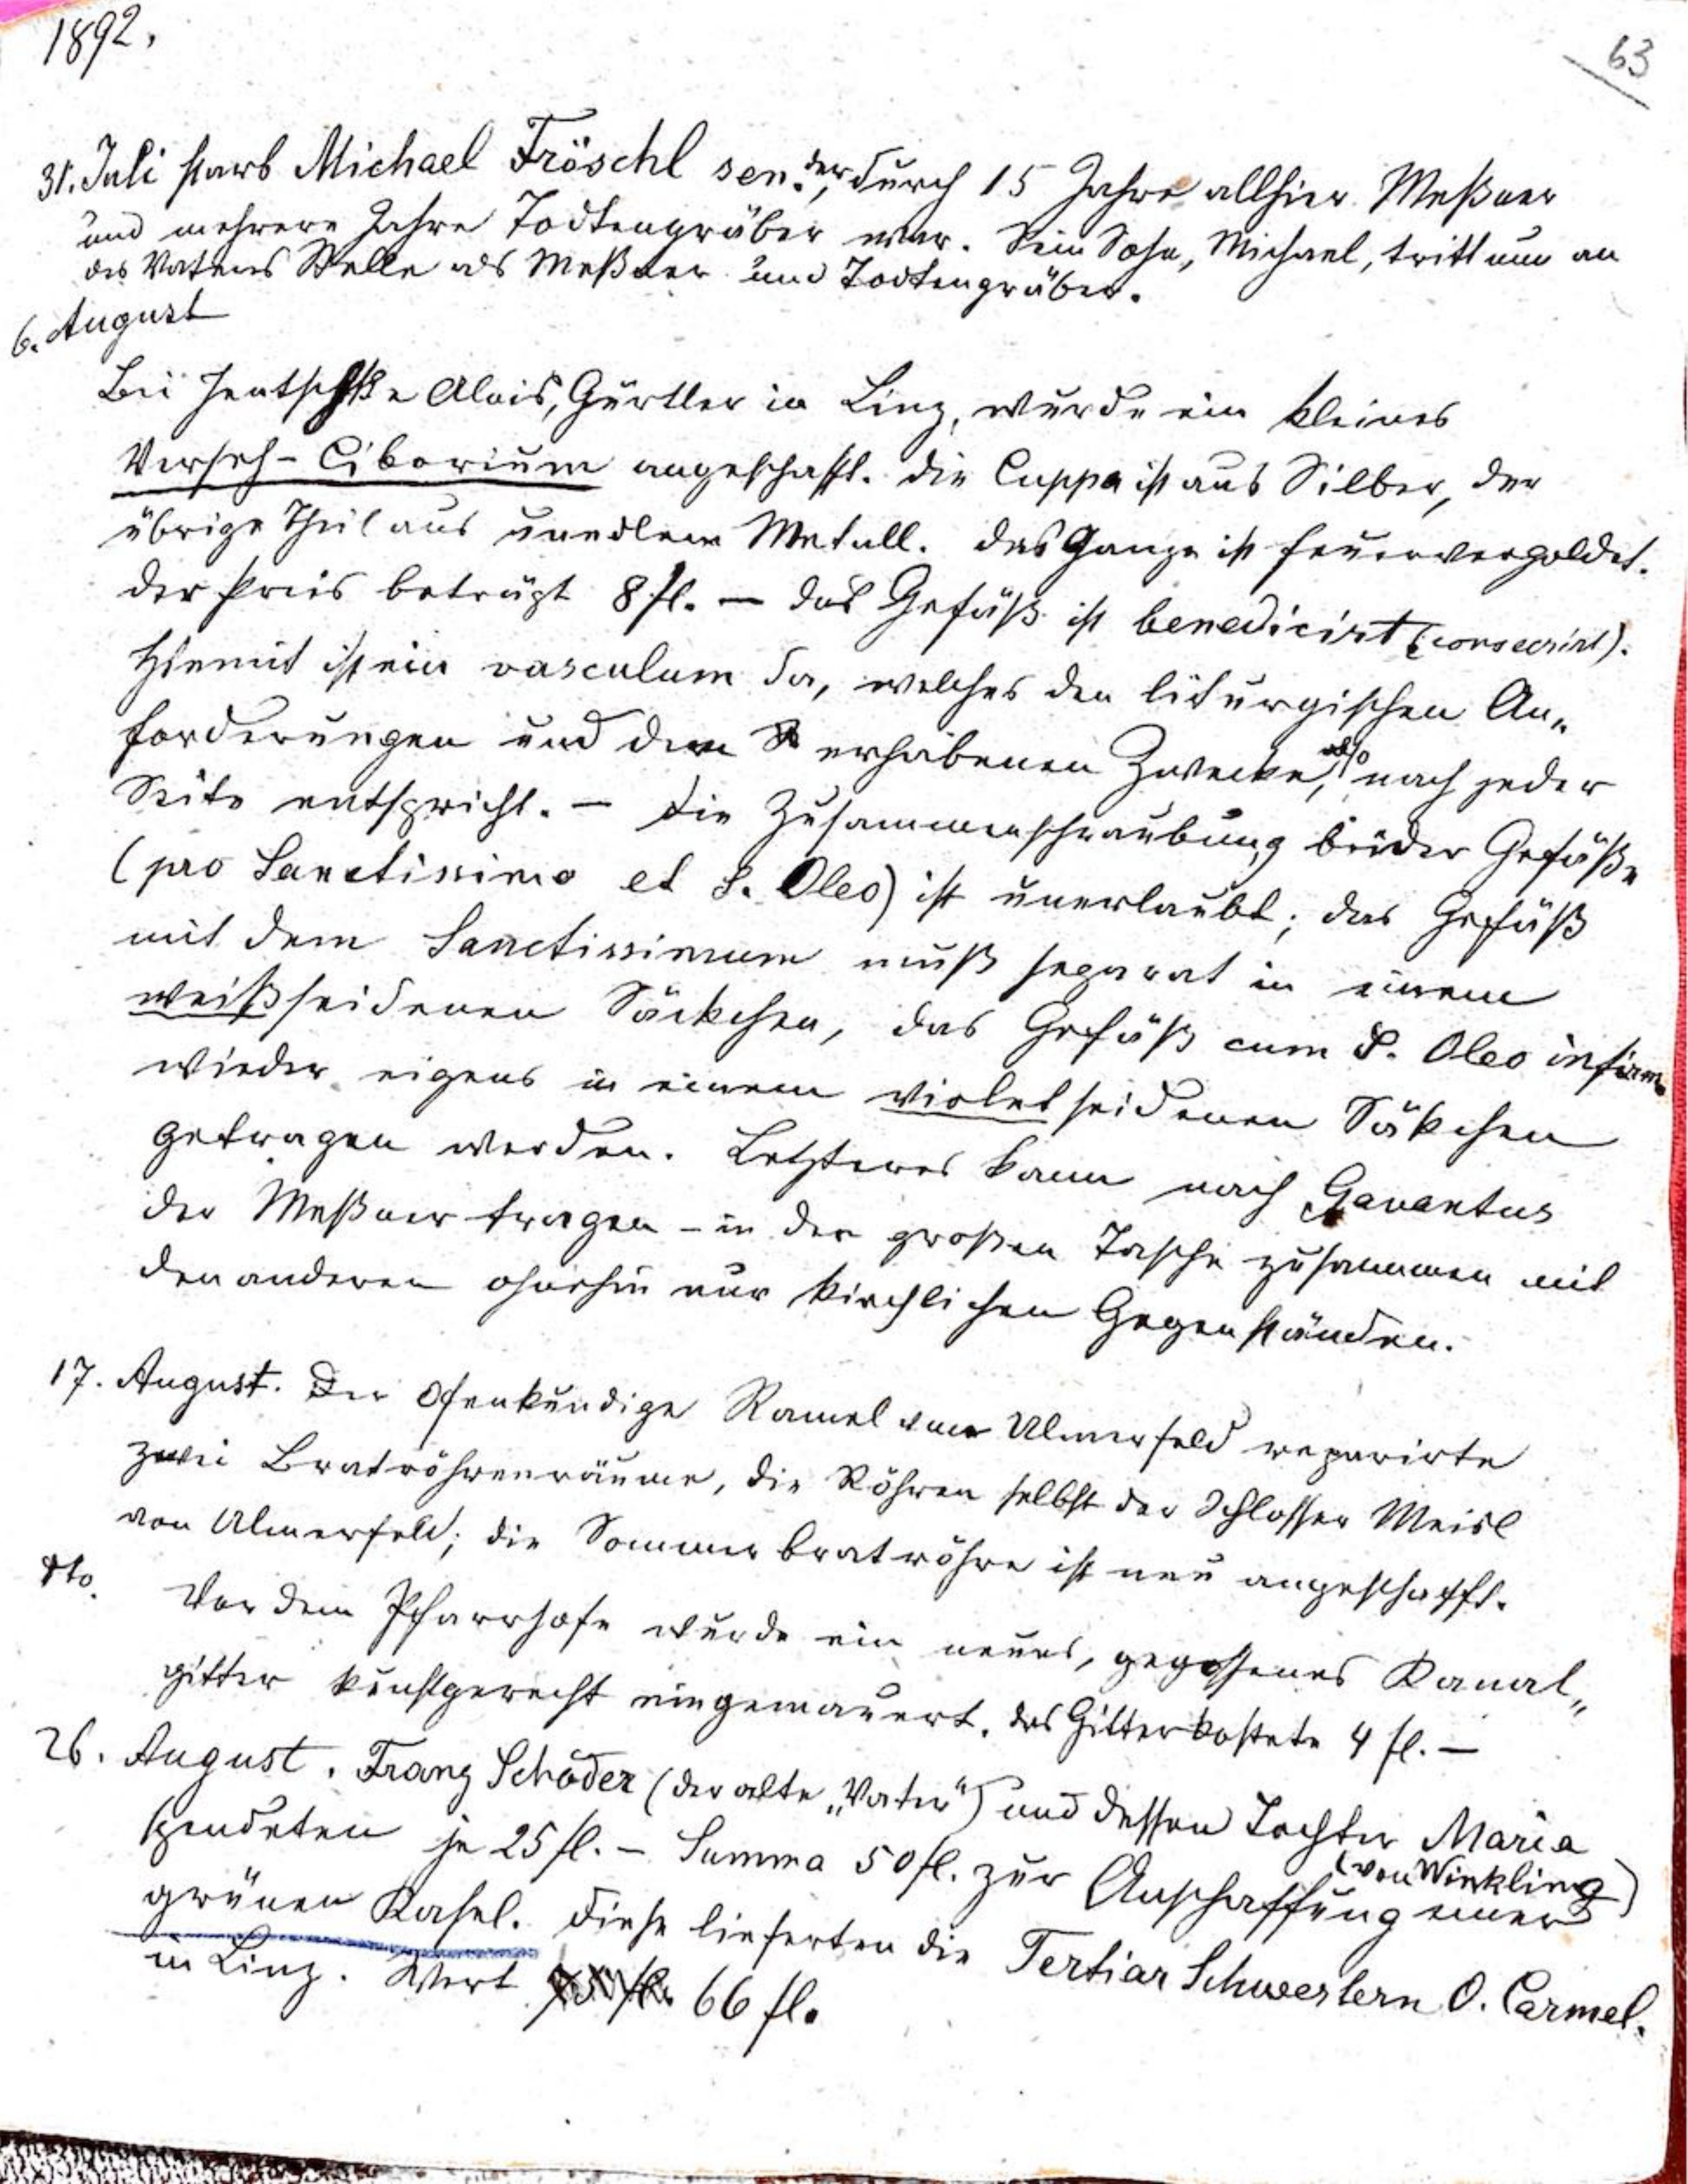 1892.
63
31. Juli starb Michael Fröschl sen., der durch 15 Jahre allhier Meßner
und mehrere Jahre Todtengräber war. Sein Sohn, Michael, tritt nun an
des Vaters Stelle als Meßner und Todtengräber.
6. August
Bei Jentschke Alois, Gürtler in Linz, wurde ein kleines
Verseh-Ciborium angeschafft. Die Cuppa ist aus Silber, der
übrige Theil aus unedlem Metall. Das Ganze ist feuervergoldet.
Der Preis beträgt 8 fl. — Das Gefäß ist benedicirt (consecrirt).
Hiemit ist ein vasculum da, welches den liturgischen An„
forderungen und dem erhabenen Zwecke, also nach jeder
Seite entspricht. — Die Zusammenschraubung beider Gefäße
(pro Sanctissimo et S. Oleo) ist unerlaubt; das Gefäß
mit dem Sanctissimum muß separat in einem
weißseidenen Säckchen, das Gefäß cum S. Oleo infirm.
wieder eigens in einem violetseidenen Säkchen
getragen werden. Letzteres kann nach Gavantus
der Meßner tragen – in der großen Tasche zusammen mit
den anderen ohnehin nur kirchlichen Gegenständen.
17. August. Der Ofenkundige Ramel von Ulmerfeld reparirte
zwei Bratröhrenräume, die Röhren selbst der Schlosser Meisl
von Ulmerfeld; die Sommerbratröhre ist neu angeschafft.
dto. Vor dem Pfarrhofe wurde ein neues, gegossenes Kanal„
gitter kunstgerecht eingemauert. Das Gitter kostete 4 fl. —
26. August. Franz Schöder (der alte „Vater") und dessen Tochter Maria
(von Winkling)
spendeten je 25 fl. – Summa 50 fl. zur Anschaffung einer
grünen Kasel. Diese lieferten die Tertiar Schwestern O. Carmel.
in Linz. Wert 66 fl.